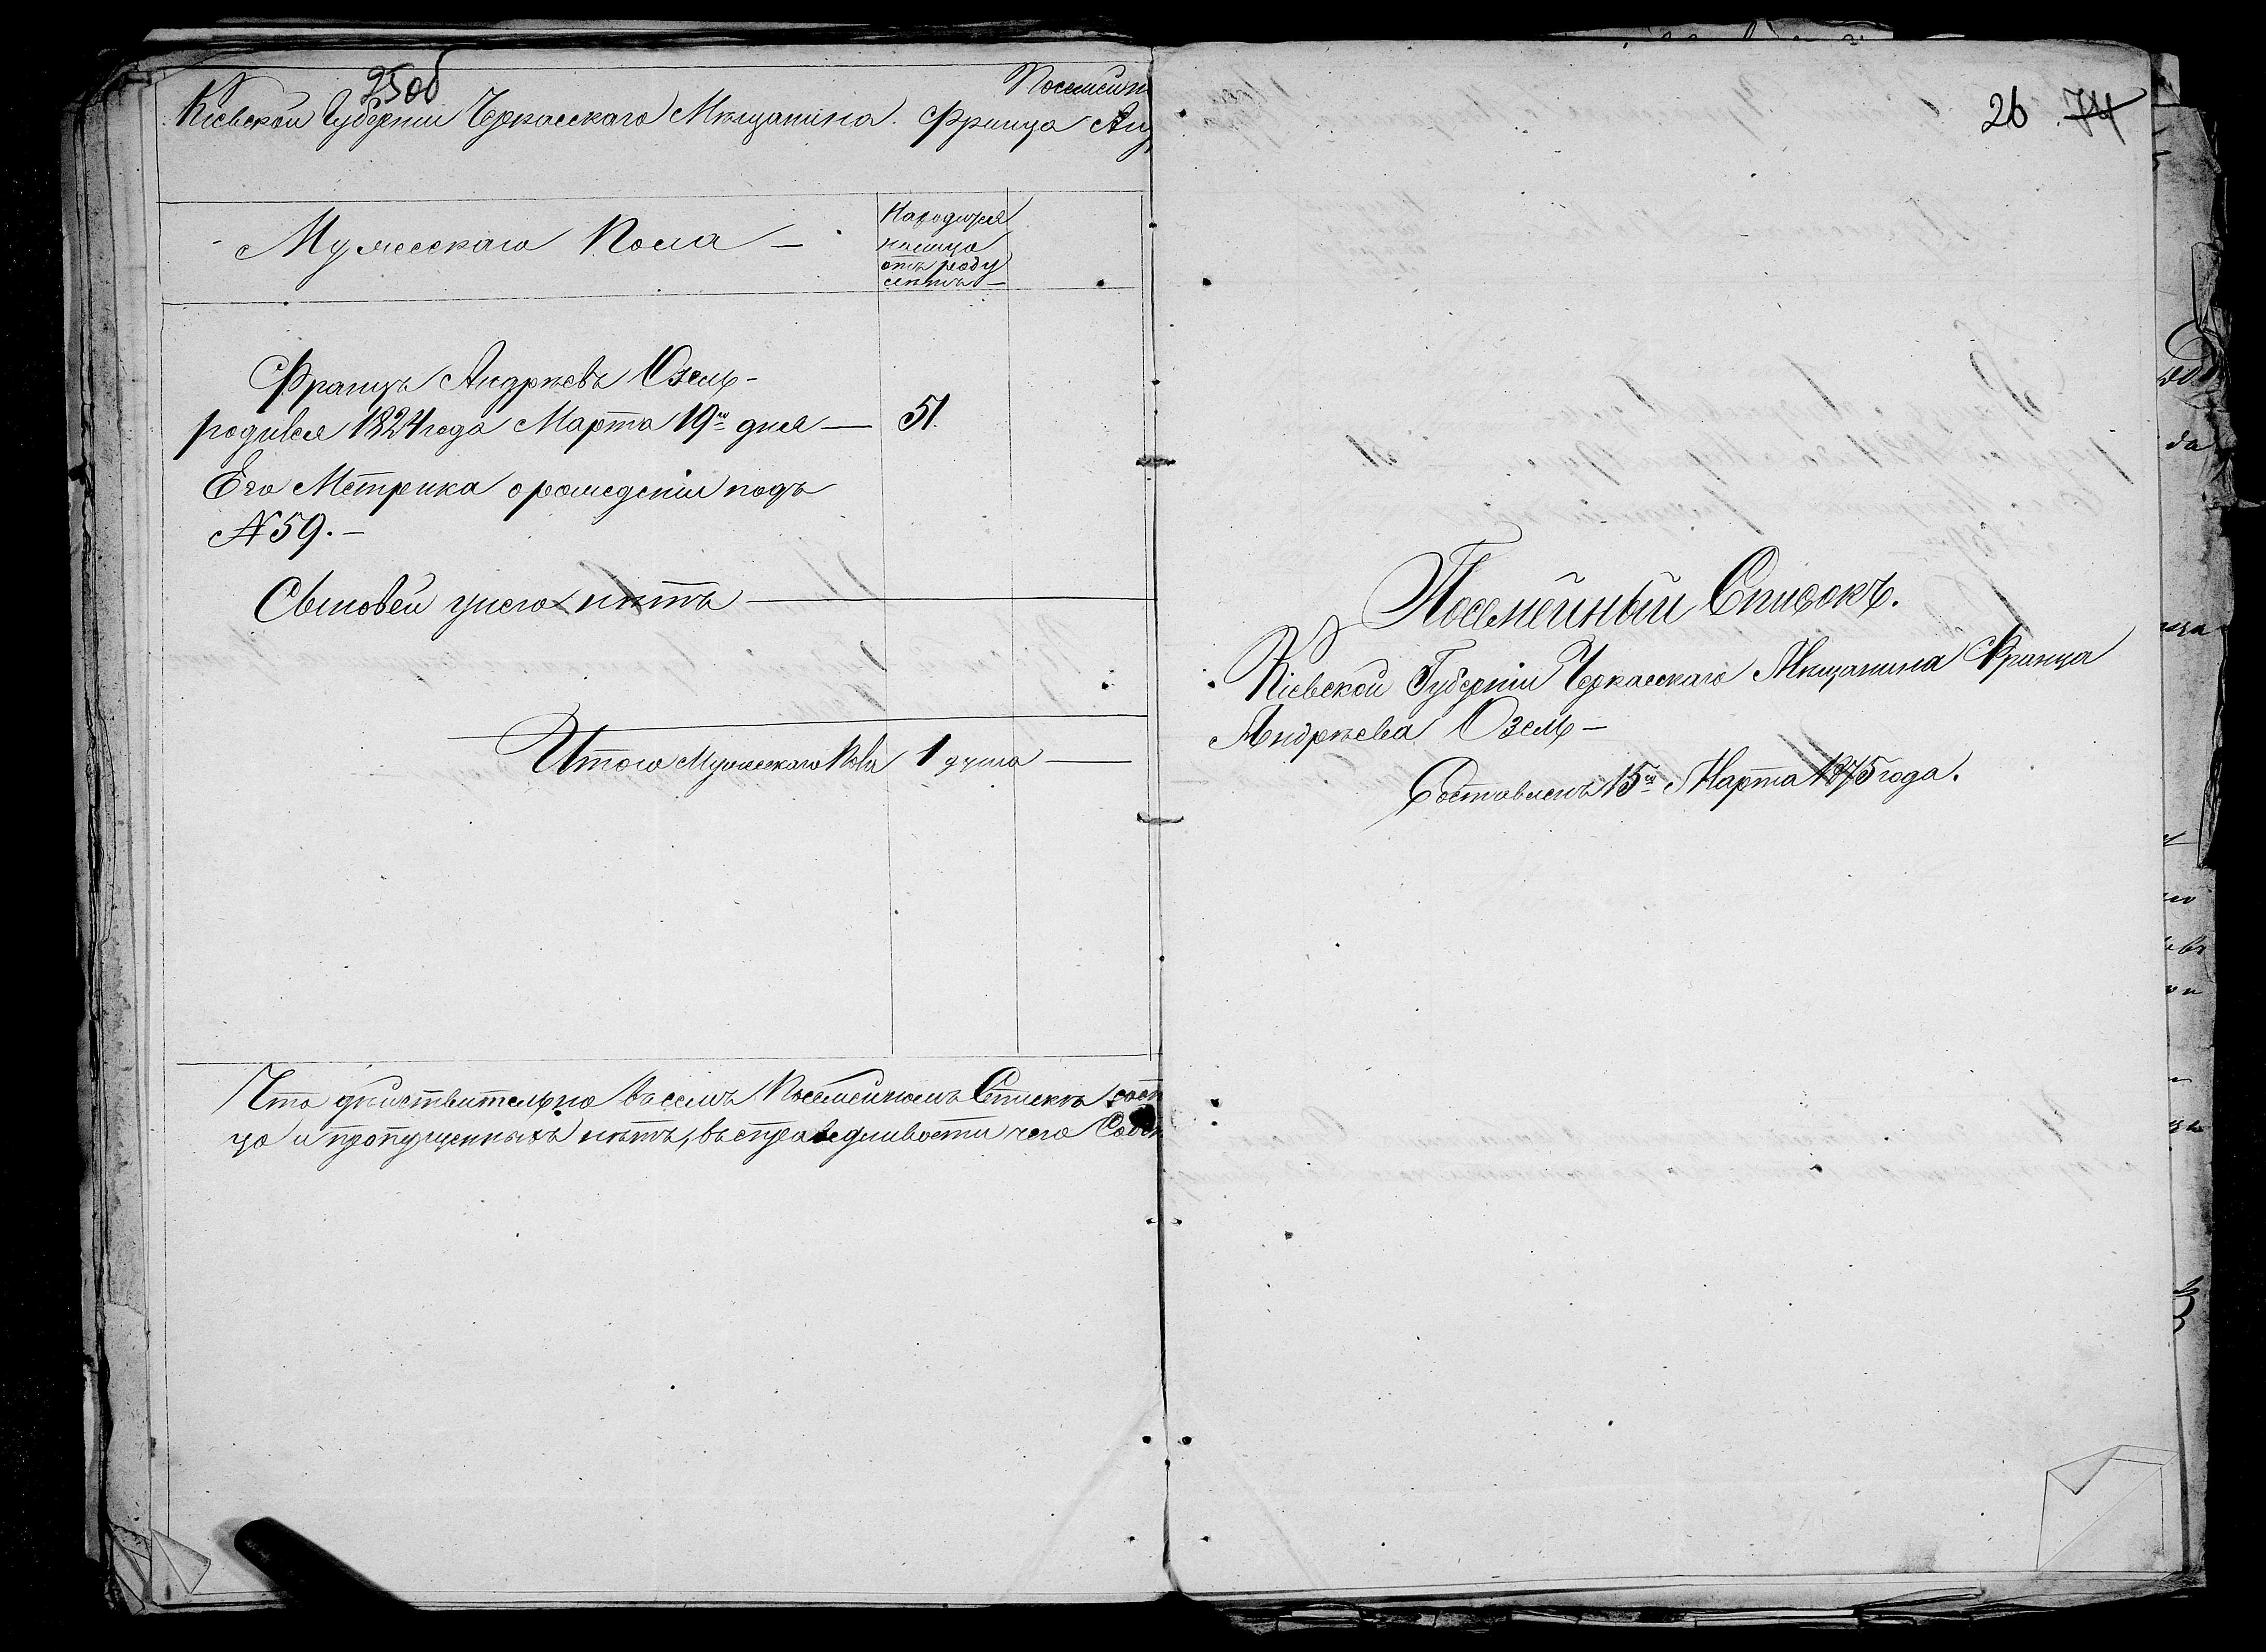 25об
Посемейн
Кіевской Губерніи Черкасскаго Мѣщанина Франца Анд
Мужескаго Пола
На родится
налицо
отъ роду
лѣтъ
Францъ Андрѣевъ Озель
родився 1824 года Марта 19го дня — 51.
Его Метрика о рожденіи подъ
№ 59. —
Сыновей унего нѣтъ —
Итого Мужескаго Пола 1 душа —
Что дѣйствительно въ семъ Посемейномъ Спискѣ сост
цо и пропущенныхъ нѣтъ, въ справедливости чего Собс
26 74
Посемейный Списокъ.
Кіевской Губерніи Черкасскаго Мѣщанина Франца
Андрѣева Озель —
Составленъ 15го Марта 1875 года.